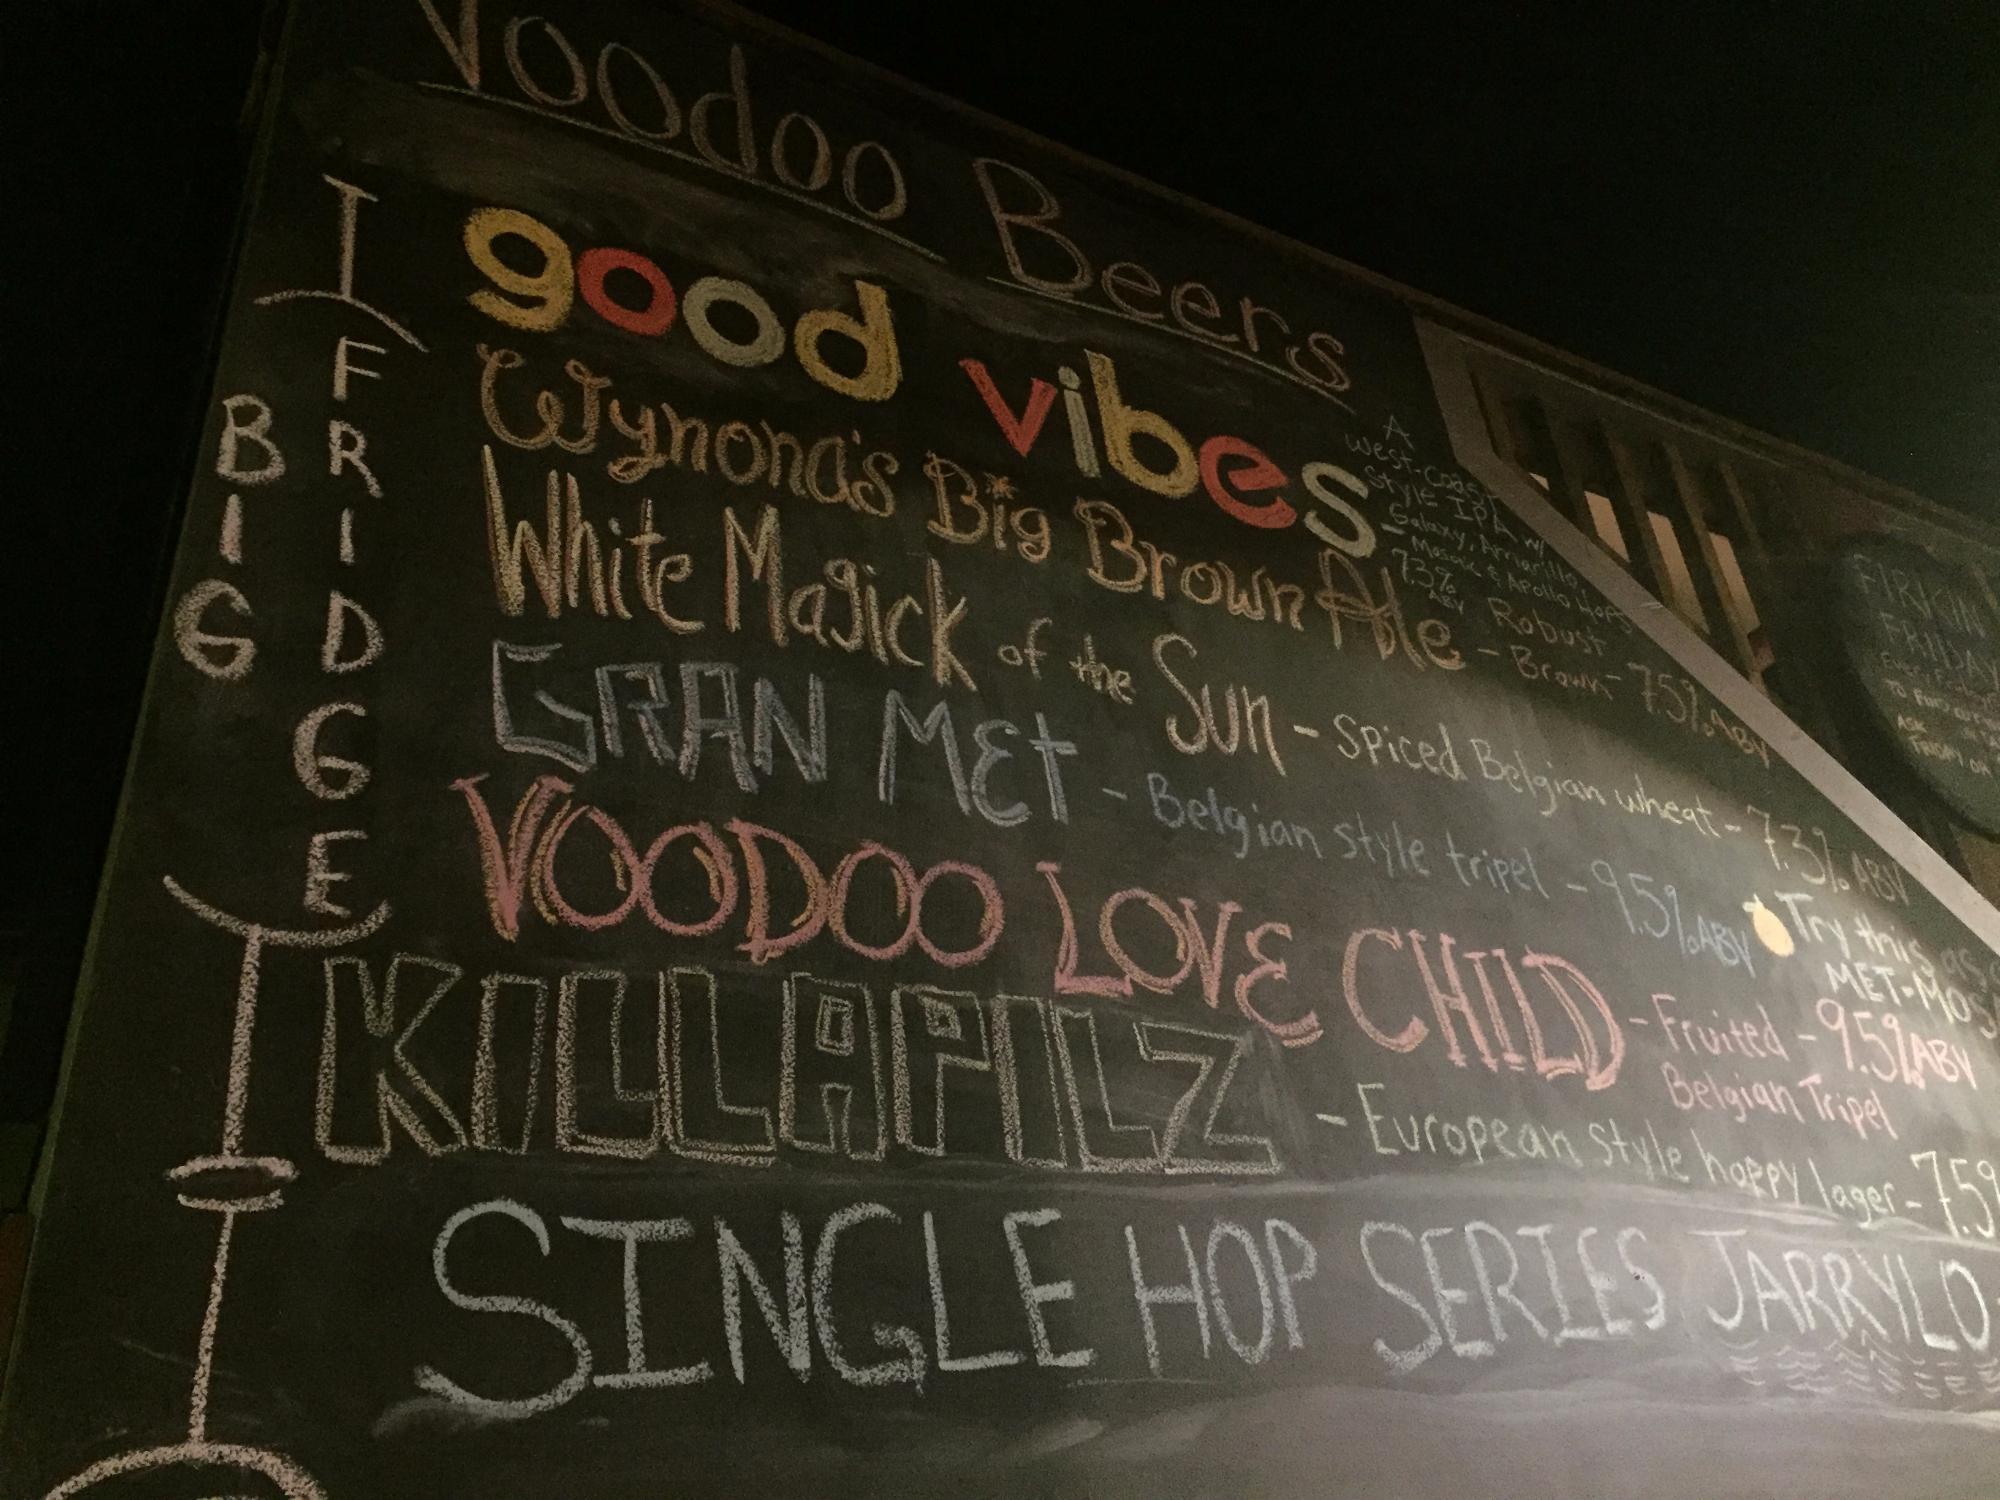 Voodoo Beers
BIG
FRIDGE
good vibes
A
West-coast
Style IPA w/
Galaxy, Amarillo
Mosaic & Apollo Hops
7.3%
ABV
Wynona's Big Brown Ale - Robust
Brown - 7.5% ABV
White Magick of the Sun - Spiced Belgian wheat - 7.3% ABV
GRAN MET - Belgian style tripel - 9.5% ABV
Try this as a
MET-MOS
VOODOO LOVE CHILD - Fruited - 9.5% ABV
Belgian Tripel
KILLAPILZ - European style hoppy lager - 7.5%
SINGLE HOP SERIES JARRYLO -
FIRKIN
FRIDAY
Every
TO FIND OUT
ASK
FRIDAY OR